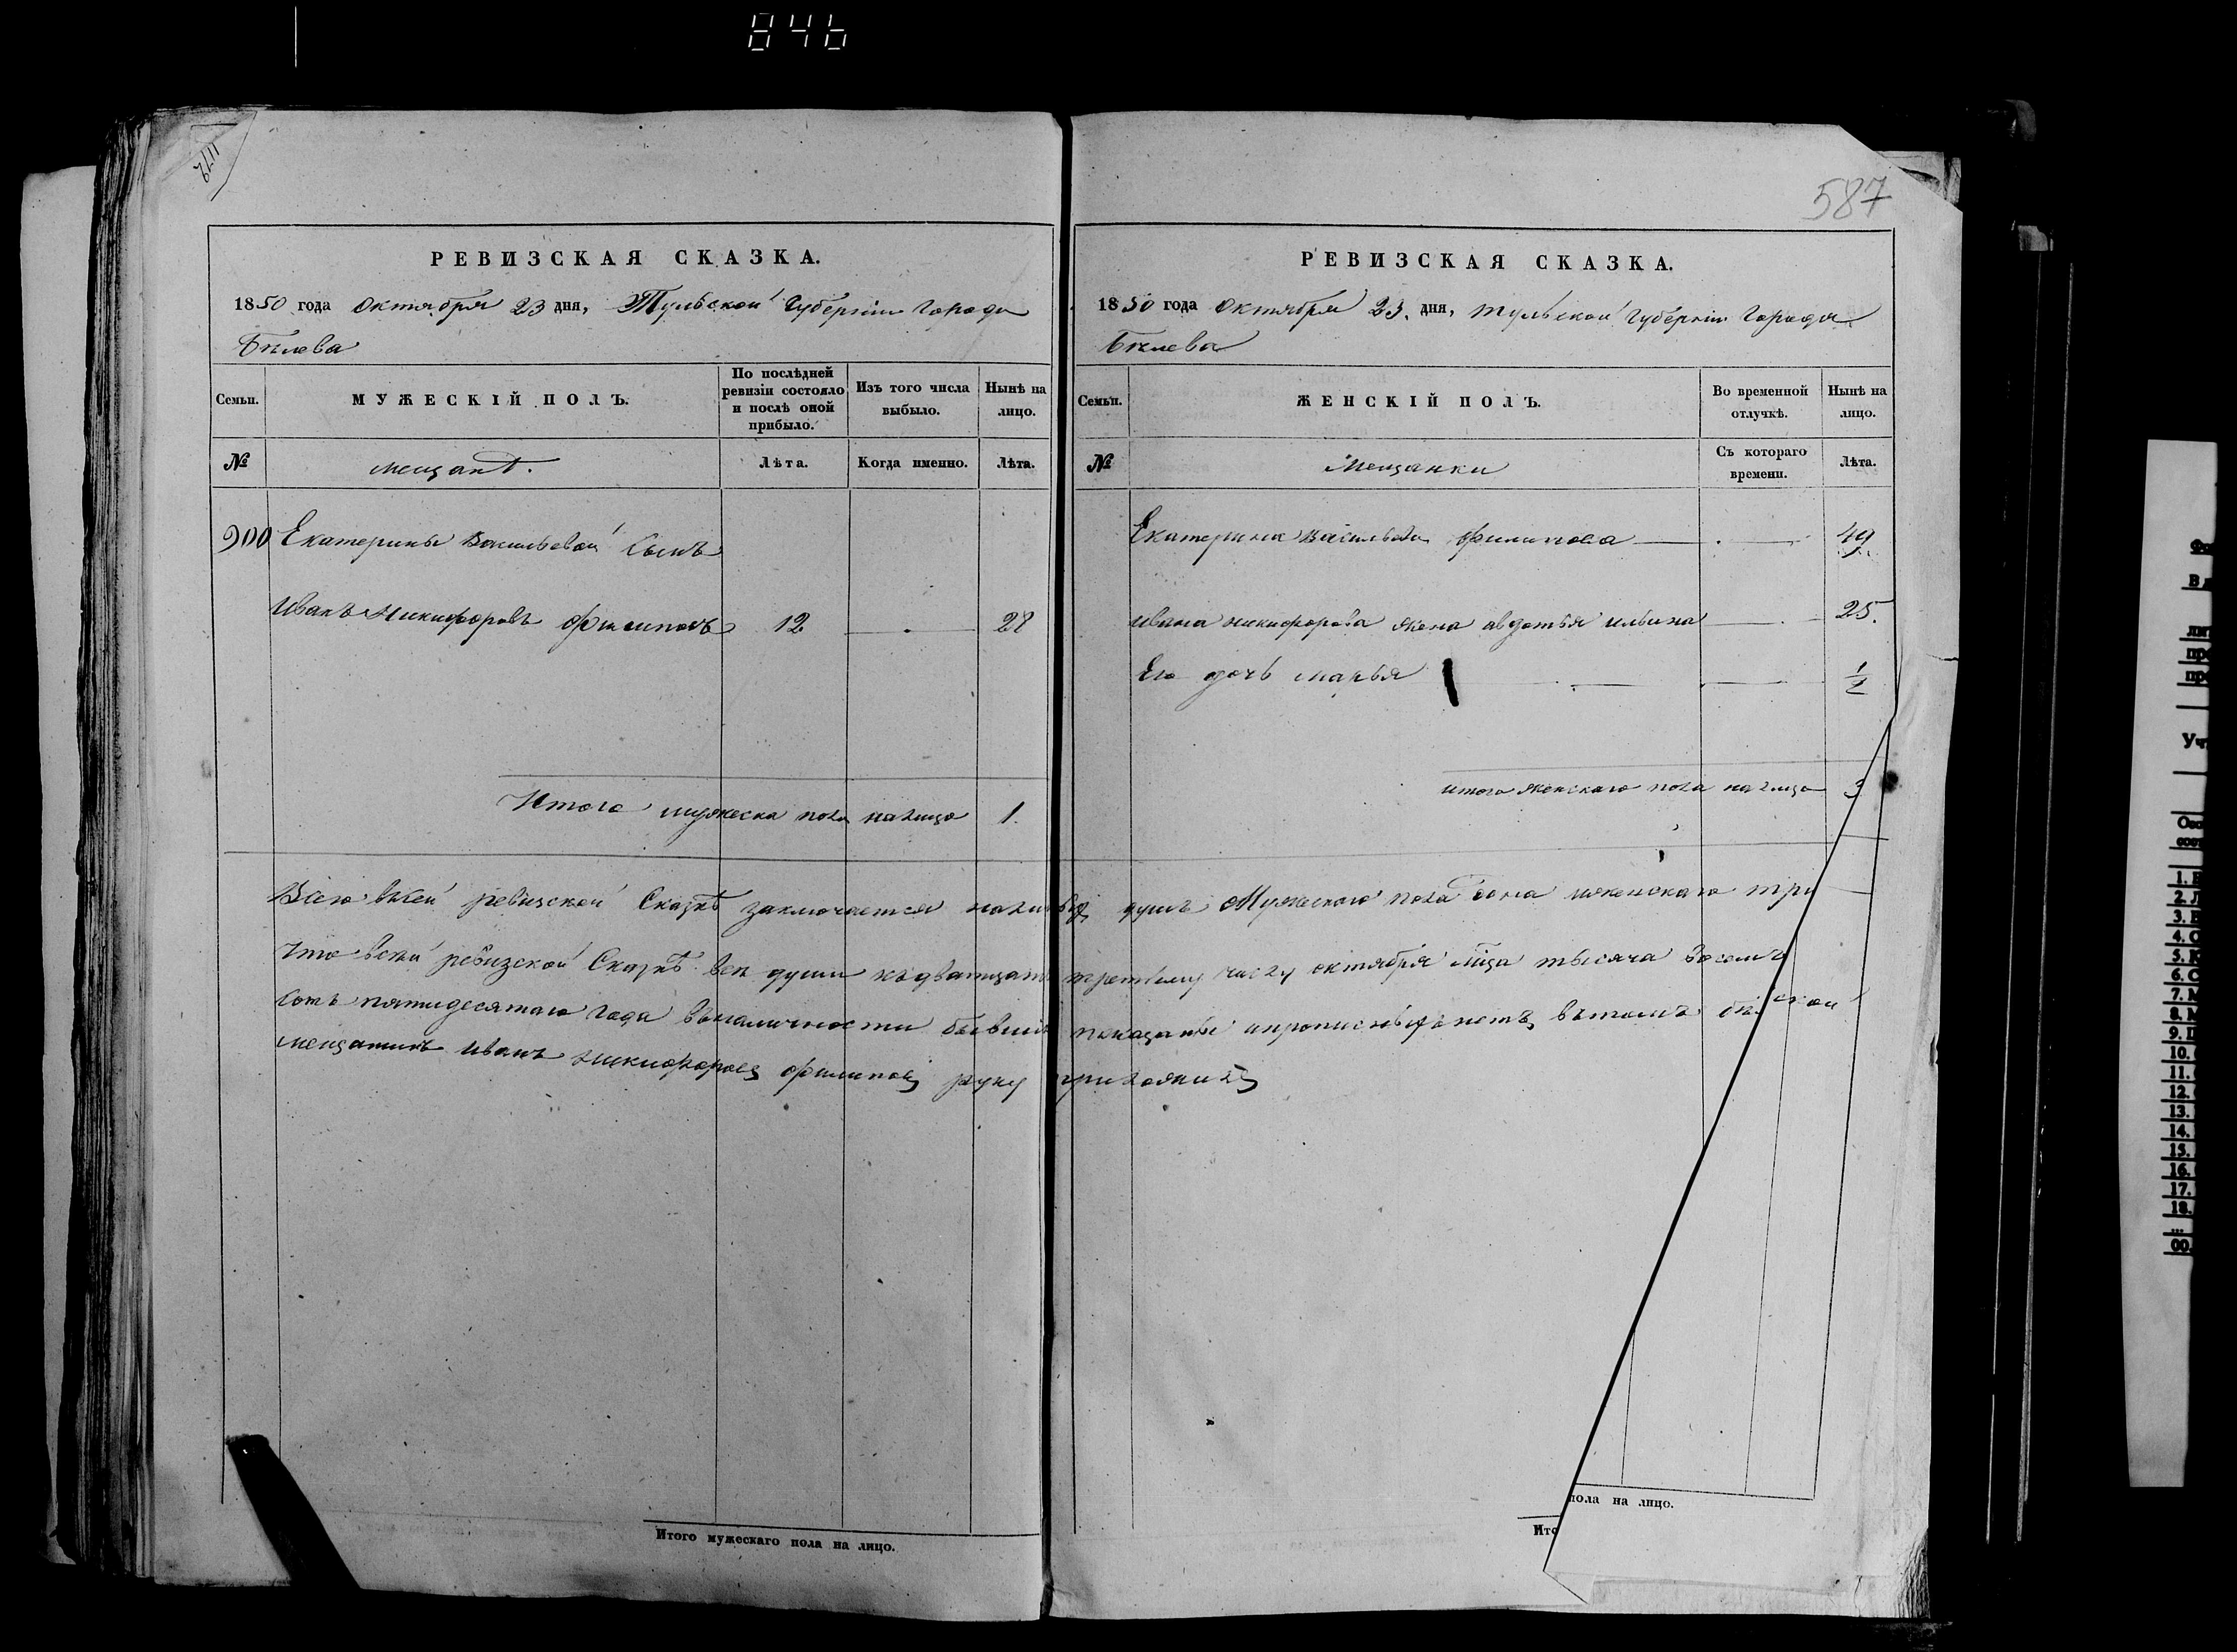 846
1179
РЕВИЗСКАЯ СКАЗКА.
1850 года Октября 23 дня, Тульской Губернiи Города
Бѣлева
Семьи.
МУЖЕСКІЙ ПОЛЪ.
По послѣдней ревизіи состояло и послѣ оной прибыло.
Изъ того числа выбыло.
Нынѣ на лицо.
№
мещанъ.
Лѣта.
Когда именно.
Лѣта.
900 Екатерины Васильевой Сынъ
Иванъ Никифоровъ Филиповъ 12 28
Итого мужеска пола налицо 1.
Итого мужескаго пола на лицо.
587
РЕВИЗСКАЯ СКАЗКА.
1850 года Октября 23. дня, тульской Губернiи Города
Бѣлева
Семьи.
ЖЕНСКІЙ ПОЛЪ.
Во временной отлучкѣ.
Нынѣ на лицо.
№
Мещанки
Съ котораго времени.
Лѣта.
Екатерина Васильева Филипова 49
ивана никифорова жена авдотья ильина 25.
Его дочь марья 1/2
итого женскаго пола налицо 3
Всего въсей ревизской Сказкѣ заключается душъ Мужескаго пола одна иженскаго три
Что всей ревизской Сказкѣ все души къдватцать третьему числу октября мѣсца тысяча восемь
сотъ пятидесятаго года въналичности бывши показаны ипрописныхъ нетъ, вътомъ
мещанинъ иванъ никифоровъ филиповъ руку приложилъ
пола на лицо.
Ито